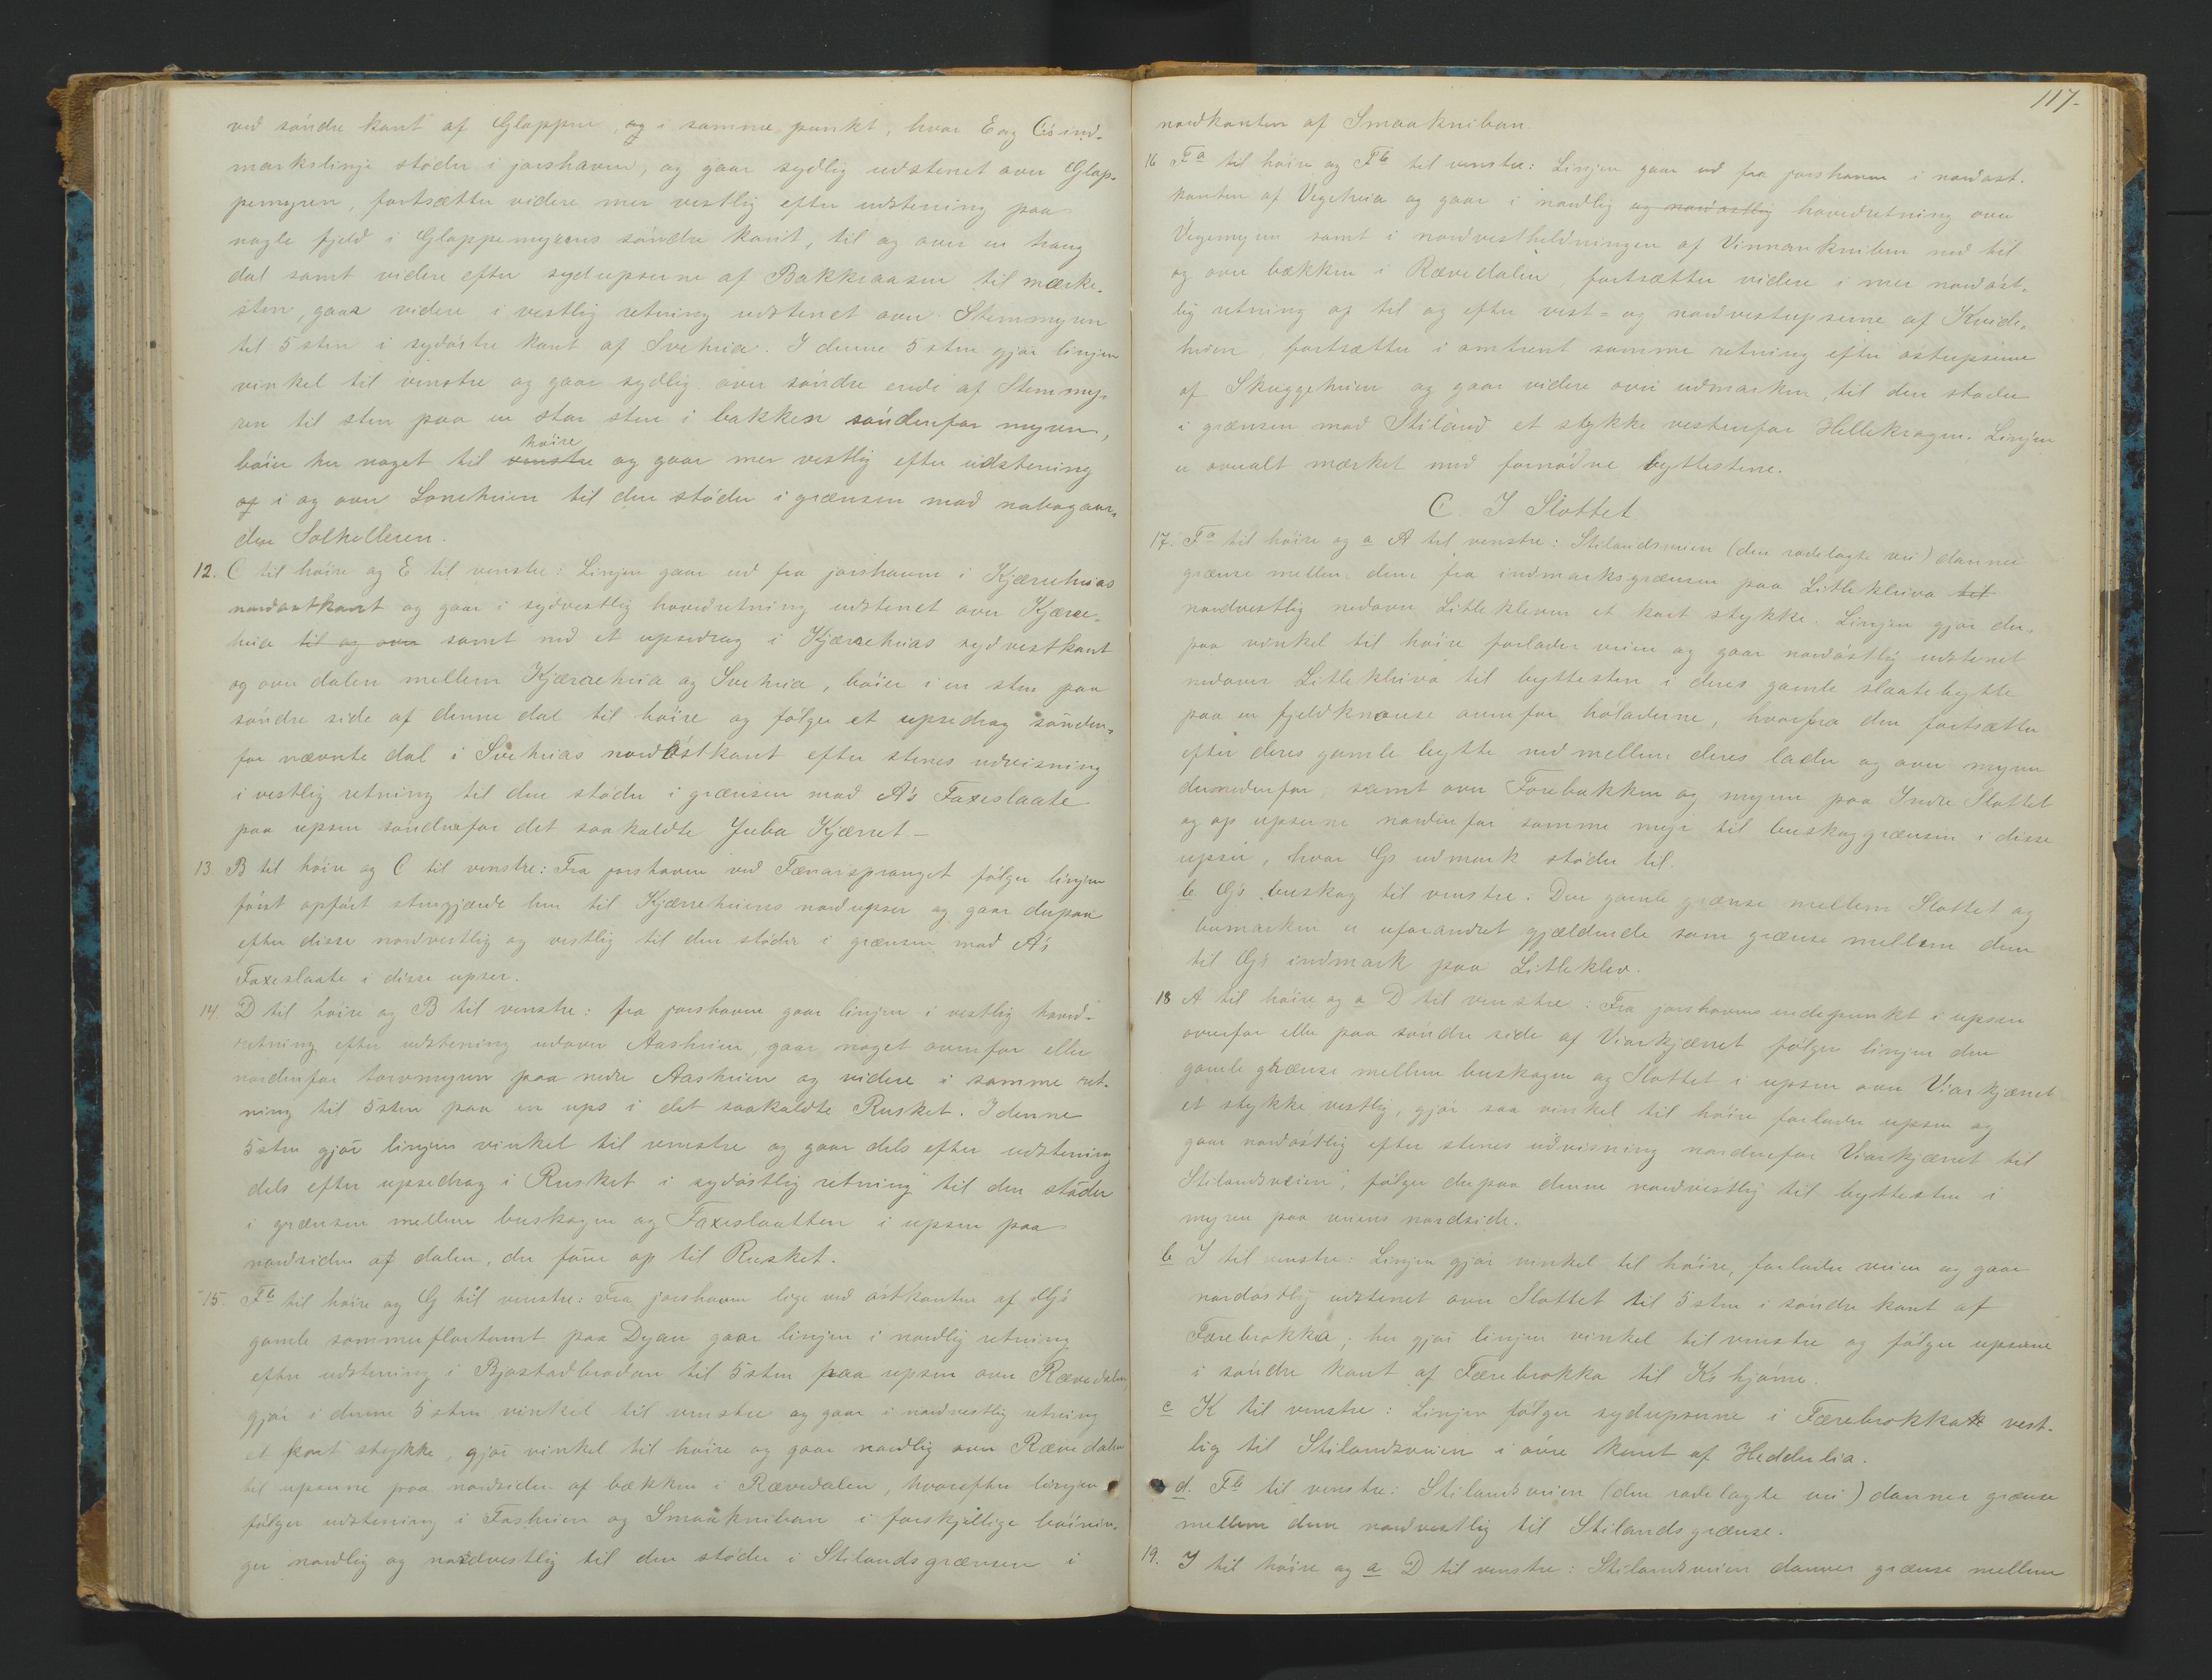 ved søndre kant af Gloppen, og i samme punkt, hvor E og C's ind-
markslinje støder i jorshaven, og gaar sydlig udstenet over Glop-
pemyren, fortsætter videre mer vestlig efter udstening paa
nogle fjeld i Gloppemyrens søndre kant, til og over en trang
dal samt videre efter sydupserne af Bakkeaasen til mærke-
sten, gaar videre i vestlig retning udstenet over Stemmyren
til 5 sten i sydøstre kant af Sveheia. I denne 5 sten gjør linjen
vinkel til venstre og gaar sydlig over søndre ende af Stemmy-
ren til sten paa en stor sten i bakken søndenfor myren,
høire
bøier her noget til venstre og gaar mer vestlig efter udstening
op i og over Loneheien til den støder i grænsen mod nabogaar-
den Solhelleren.
12. C til høire og E til venstre: Linjen gaar ud fra jorshaven i Kjærreheias
nordostkant og gaar i sydvestlig hovedretning udstenet over Kjærre-
heia til og over samt ned et upsedrag i Kjærreheias sydvestkant
og over dalen mellem Kjærreheia og Sveheia, bøier i en sten paa
søndre side af denne dal til høire og følger et upsedrag sønden-
for nævnte dal i Sveheias nordøstkant efter stenes udvisning
i vestlig retning til den støder i grænsen mod A's Faxeslaate
paa upsen søndenfor det saakaldte Juba Kjærret -
13. B til høire og C til venstre: Fra jorshaven ved Fænarspranget følger linjen
først opført stengjærde hen til Kjærreheiens nordupser og gaar derpaa
efter disse nordvestlig og vestlig til den støder i grænsen mod A's
Faxeslaate i disse upser.
14. D til høire og B til venstre: fra jorshaven gaar linjen i vestlig hoved-
retning efter udstening udover Aasheien, gaar noget ovenfor eller
nordenfor torvmyren paa nedre Aasheien og videre i samme ret-
ning til 5 sten paa en ups i det saakaldte Rusket. I denne
5 sten gjør linjen vinkel til venstre og gaar dels efter udstening
dels efter upsedrag i Rusket i sydøstlig retning til den støder
i grænsen mellem buskogen og Faxeslaatten i upsen paa
nordsiden af dalen, der fører op til Rusket.
15. Fb til høire og G til venstre: Fra jorshaven lige ved østkanten af G's
gamle sommerflortomt paa Dyan gaar linjen i nordlig retning
efter udstening i Bjostadbrodan til 5 sten paa upsen over Rævedalen,
gjør i denne 5 sten vinkel til venstre og gaar i nordvestlig retning
et kort stykke, gjør vinkel til høire og gaar nordlig over Rævedalen
til upserne paa nordsiden af bækken i Rævedalen, hvorefter linjen
følger udstening i Fosheien og Smaakniban i forskjellige bøinin-
ger nordlig og nordvestlig til den støder i Stilandsgrænsen i
117-
nordkanten af Smaakniban
16 Fa til høire og Fb til venstre: Linjen gaar ud fra jorshaven i nordost-
kanten af Vegeheia og gaar i nordlig og nordostlig hovedretning over
Vegemyren samt i nordvestheldningen af Vinnarkniben ned til
og over bækken i Rævedalen, fortsætter videre i mer nordøst-
lig retning op til og efter vest= og nordvestupserne af Kvide-
heien, fortsætter i omtrent samme retning efter østupserne
af Skuggeheien og gaar videre over udmarken til den støder
i grænsen mod Stiland et stykke vestenfor Hellekragen. Linjen
er overalt mærket med fornødne byttestene.
C. I Slottet
17. Fa til høire og a A til venstre: Stilandsveien (den rodelagte vei) danner
grænse mellem dem fra indmarksgrænsen paa Litlekleiva til
nordvestlig nedover Litlekleven et kort stykke. Linjen gjør der-
paa vinkel til høire forlader veien og gaar nordøstlig udstenet
nedover Litlekleiva til byttesten i deres gamle slaatebytte
paa en fjeldknause ovenfor høladerne, hvorfra den fortsætter
efter deres gamle bytte ned mellem deres lader og over myren
dernedenfor, samt over Forebakken og myren paa Indre Slottet
og op upserne nordenfor samme myr til buskoggrænsen i disse
upser, hvor G's udmark støder til.
b G's buskog til venstre. Den gamle grænse mellem Slottet og
bumarken er uforandret gjældende som grænse mellem dem
til G's indmark paa Litleklev.
18 A til høire og a D til venstre: Fra jorshavens endepunkt i upsen
ovenfor eller paa søndre side af Viorkjærret følger linjen den
gamle grænse mellem buskogen og Slottet i upsen over Viorkjærret
et stykke vestlig, gjør saa vinkel til høire forlader upsen og
gaar nordøstlig efter stenes udvisning nordenfor Viorkjærret til
Stilandsveien, følger derpaa denne nordvestlig til byttesten i
myren paa veiens nordside.
b I til venstre: Linjen gjør vinkel til høire, forlader veien og gaar
nordøstlig udstenet over Slottet til 5 sten i søndre kant af
Færebrokka; her gjør linjen vinkel til venstre og følger upserne
i søndre kant af Færebrokka til K's hjørne.
c K til venstre: Linjen følger sydupserne i Færebrokka vest-
lig til Stilandsveien i øvre kant af Heddelia.
d. Fb til venstre: Stilandsveien (den rodelagte vei) danner grænse
mellem dem nordvestlig til Stilandsgrænse.
19. I til høire og a D til venstre: Stilandsveien danner grænse mellem